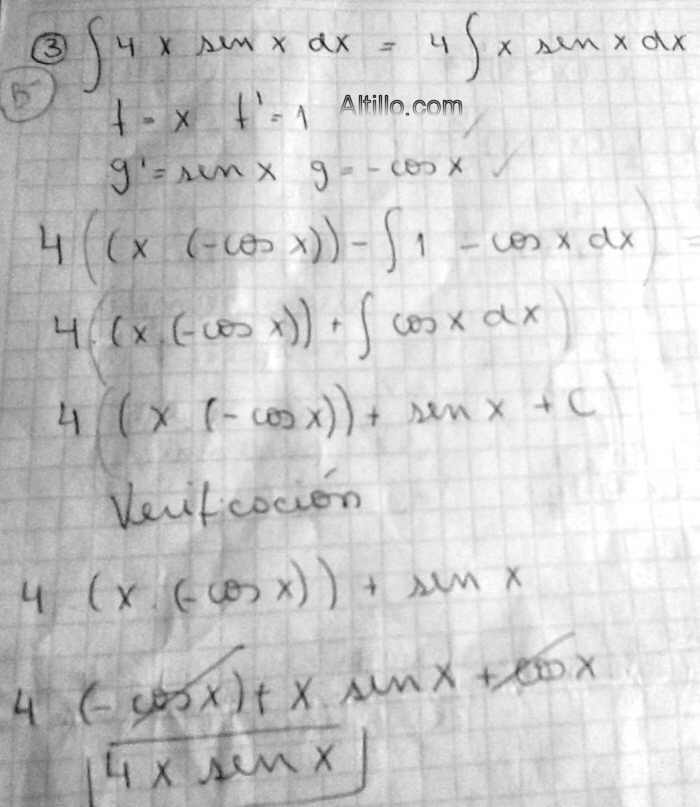 ③ ∫ 4 x sen x dx = 4 ∫ x sen x dx
B-
f = x f' = 1 Altillo.com
g' = sen x g = -cos x ✓
4 ((x (-cos x)) - ∫ 1 - cos x dx) =
4 ((x . (-cos x)) + ∫ cos x dx)
4 ((x (-cos x)) + sen x + C)
Verificación
4 (x . (-cos x)) + sen x
4 (-cos x) + x . sen x + cos x
4 x sen x